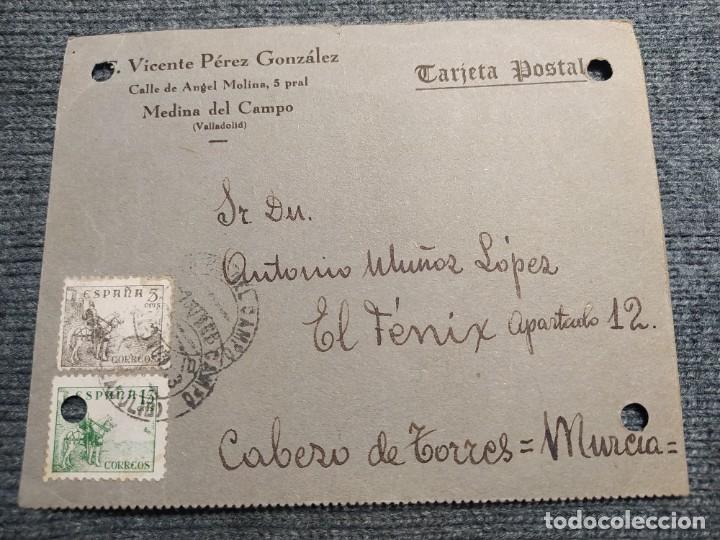 F. Vicente Pérez González
Calle de Angel Molina, 5 pral
Medina del Campo
(Valladolid)
Tarjeta Postal
Sr Dn.
Antonio Muñoz López
El Fénix Apartculo 12.
Cabezo de Torres = Murcia =
ESPAÑA 5
CTS
CORREOS
ESPAÑA 15
CTS
CORREOS
CAMPO
todocoleccion